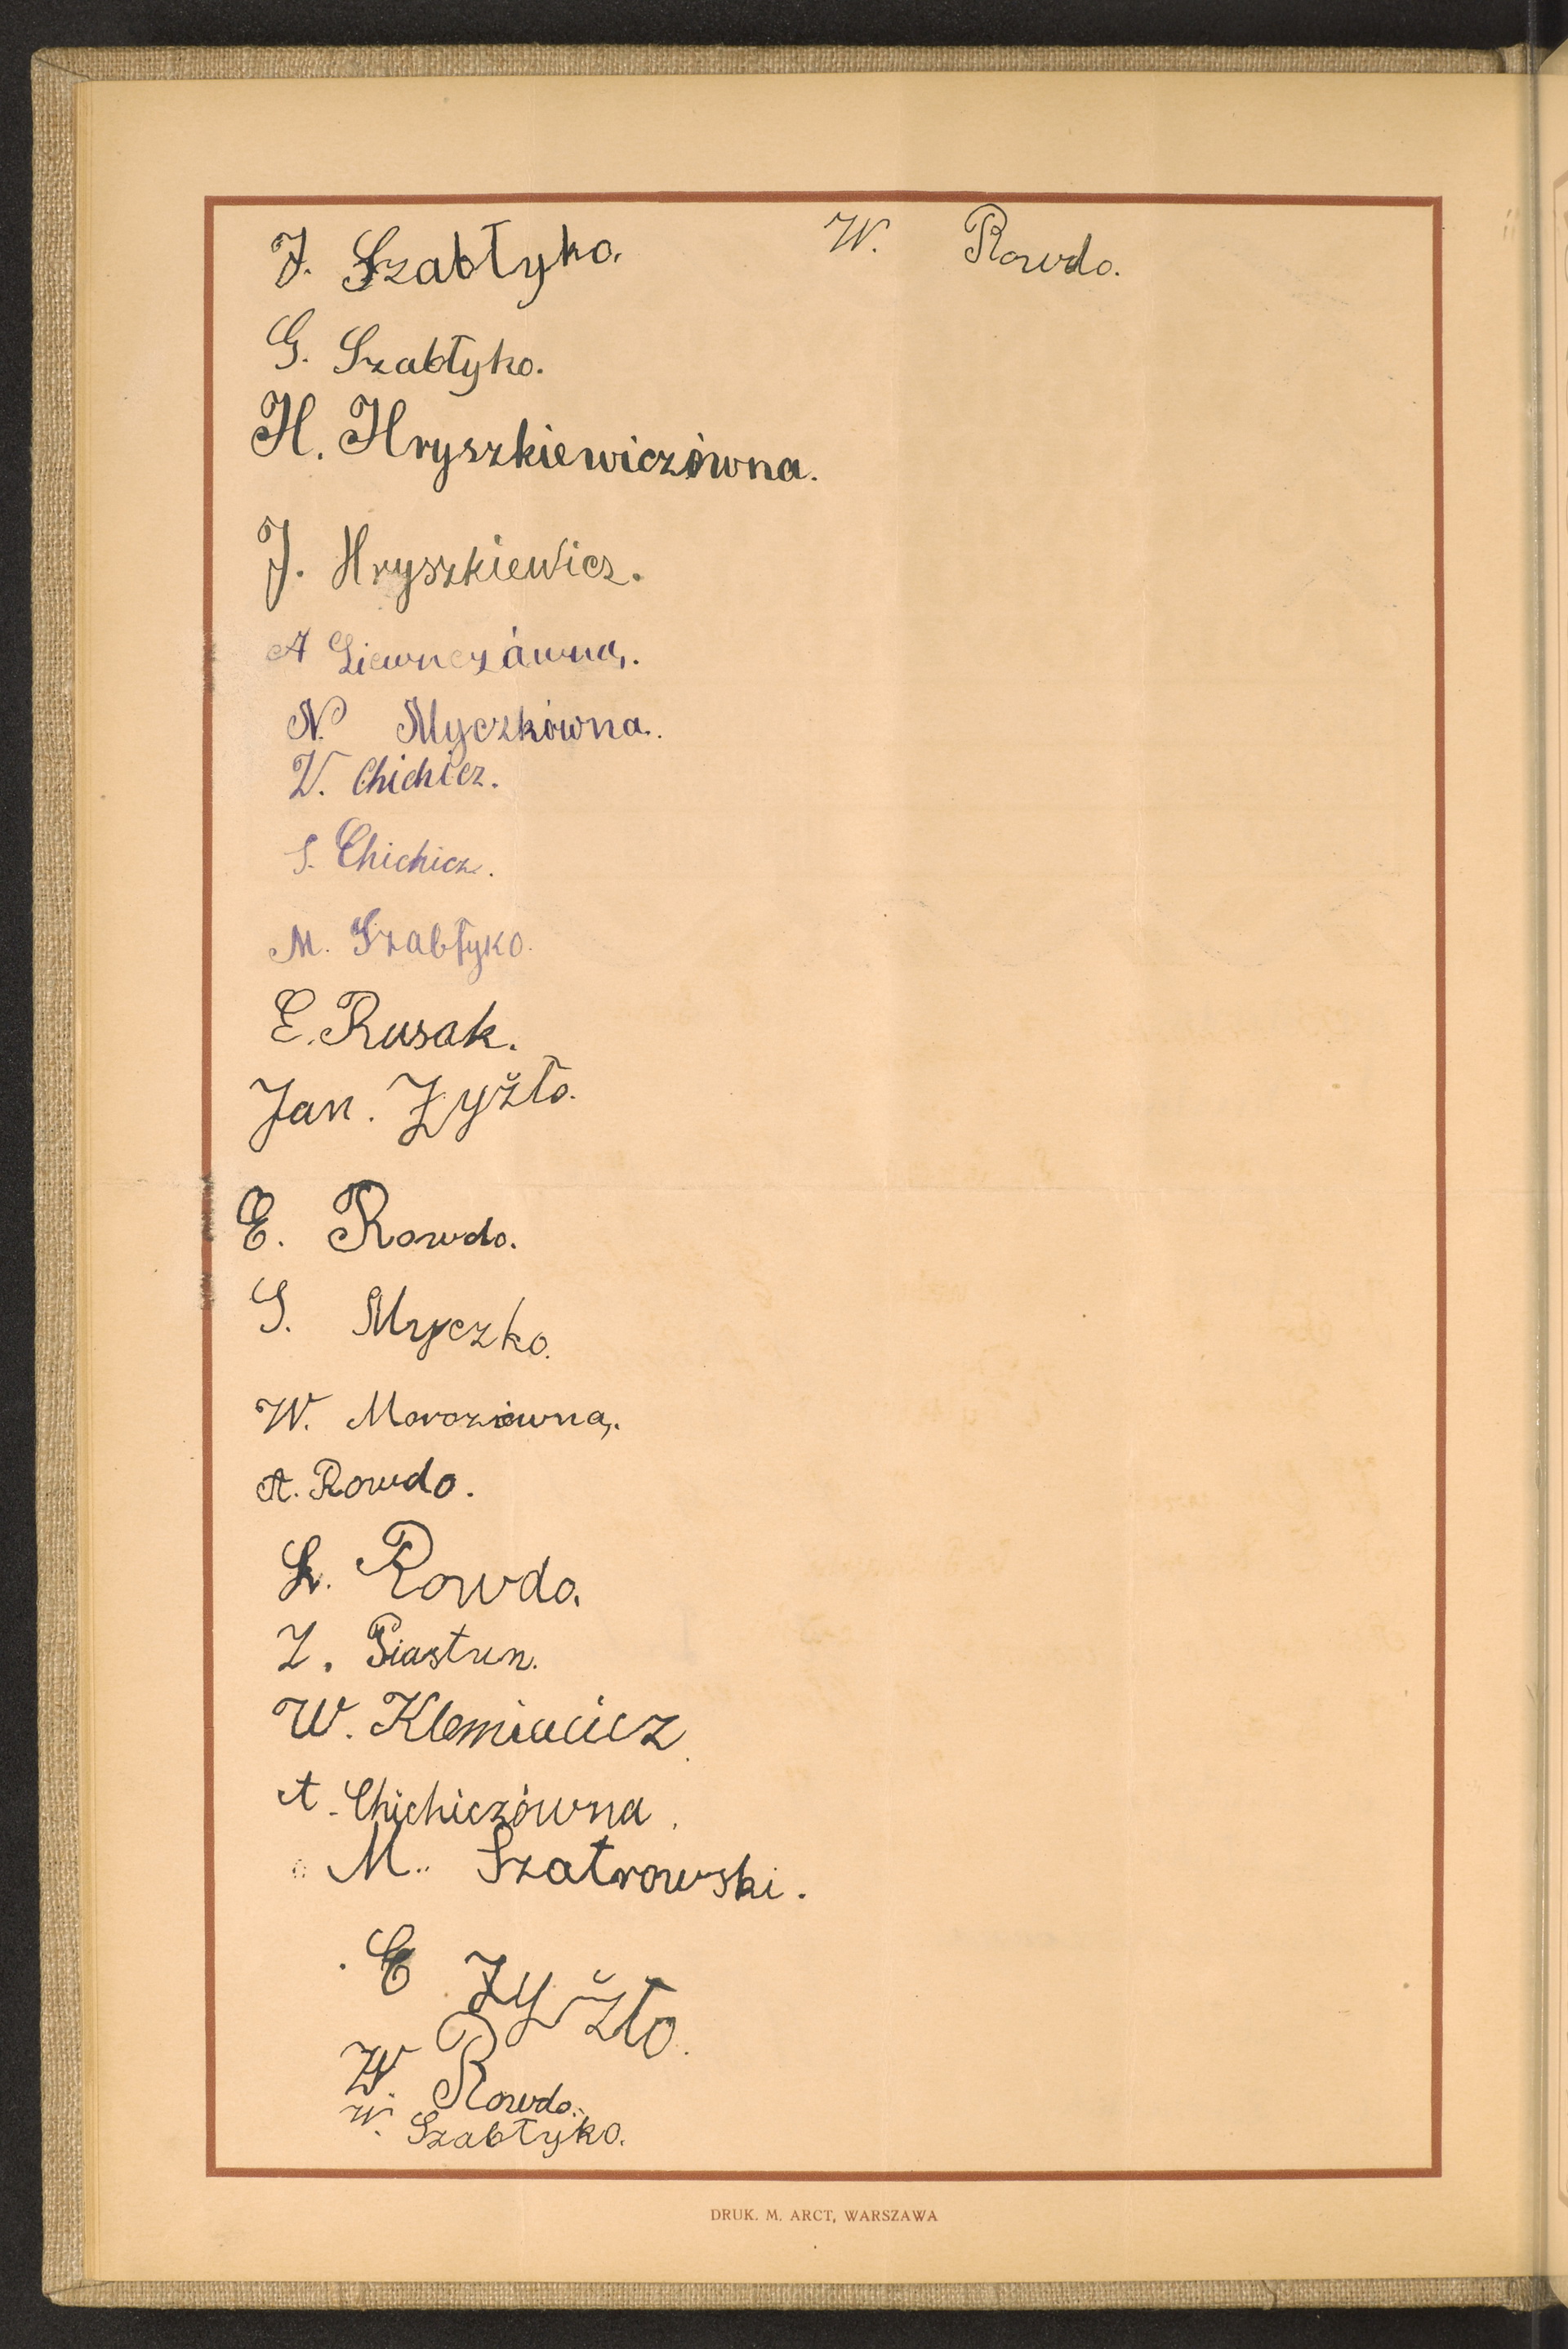 J. Szabłyko.
W. Rowdo.
G. Szabłyko.
H. Hryszkiewiczówna.
J. Hryszkiewicz.
A
N. Myczkówna.
W. Chichicz.
S. Chichicz.
M. Szabłyko.
E. Rusak.
Jan. Zyžło.
E. Rowdo.
S. Myczko.
W. Morozówna.
A. Rowdo.
L. Rowdo.
Z. Piastun.
W.
A. Chichiczówna.
M. Szatrowski.
E Zyžło.
W. Rowdo.
W. Szabłyko.
DRUK. M. ARCT, WARSZAWA